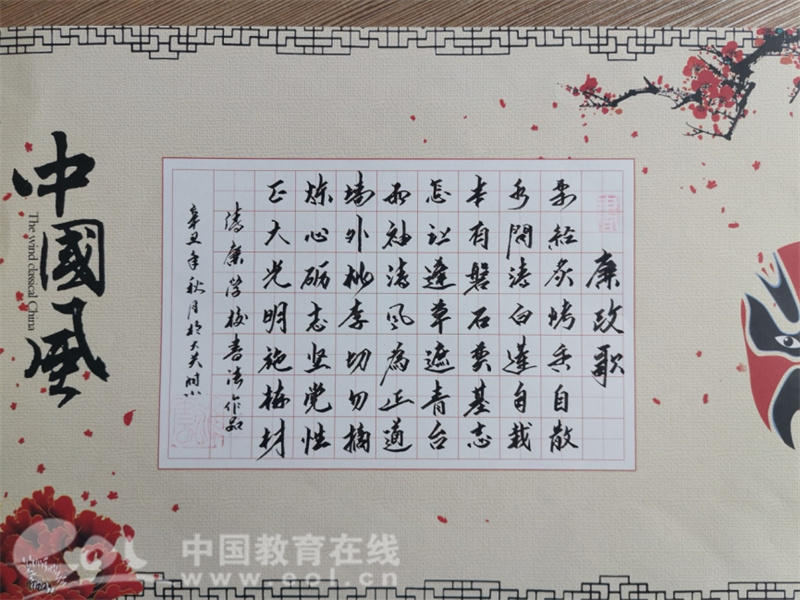 中國風
The wind classical China
廉政歌
经炙烤香自散
问清白莲自栽
本有磐石奠基志
怎让蓬草遮青台
两袖清风為正道
墙外桃李切勿摘
炼心砺志坚党性
正大光明施材
清廉学校书法作品
辛丑年秋月於大关附小
中国教育在线
www.eol.cn